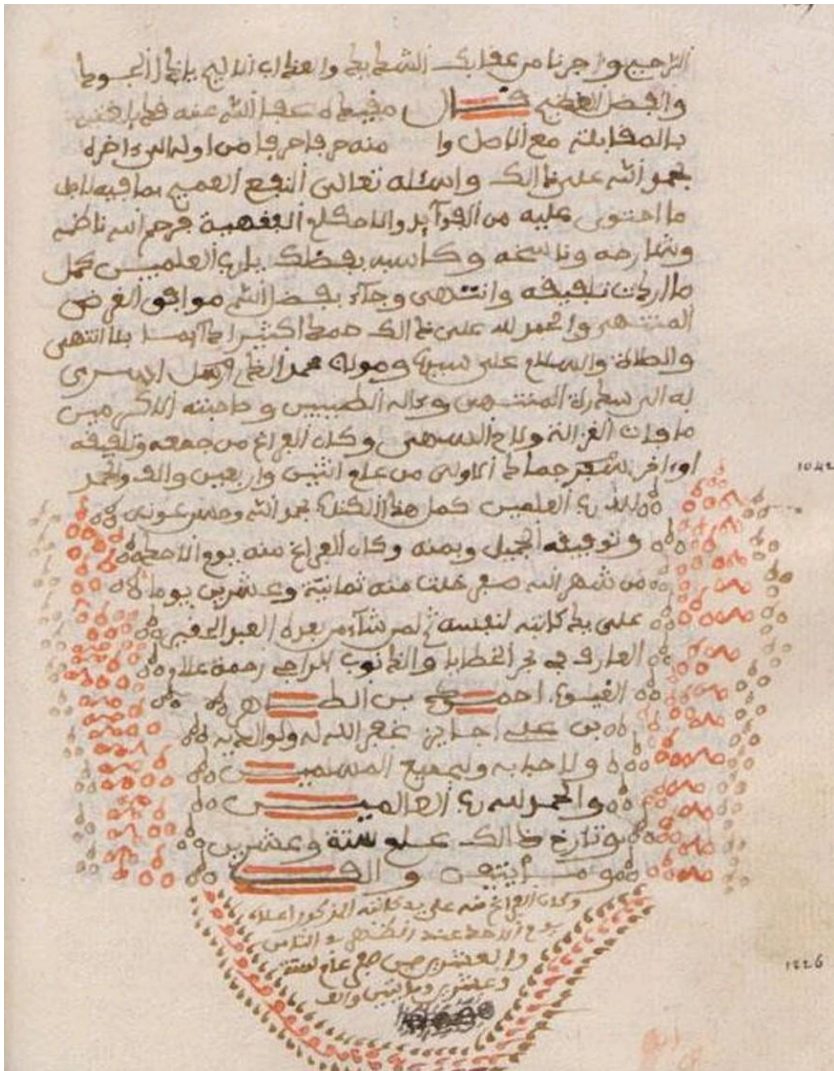 الرحيم واجرنا من عقابك الشديد والعذاب الاليم ياذا الجود
والفضل العظيم قال مقيده عفا الله عنه
بالمقابلة مع الاصل منه حرفا حرفا من اوله الى اخره
بحمد الله على ذالك واسئله تعالى النفع العميم بما فيه
ما احتوى عليه من الفوآيد والاحكام الفقهية فرحم الله ناظمه
وشارحه وناسخه وكاسبه بفضلك يا رب العلمين كمل
ما اردت تلفيفه وانتهى وجاء بفضل الله موافق الغرض
المنتهى والحمد لله على ذالك حمدا كثيرا دآيما بلا انتهى
والصلاة والسلام على سيدنا ومولانا محمد الذي اسرى
به الى سدرة المنتهى وءاله الطيبين وصحابته الاكرمين
ما ولاح السهى وكان الفراغ من جمعه وتلفيفه
اواخر شهر جمادى الاولى من عام اثنين واربعين والف والحمد
1042
لله رب العلمين كمل هذا الكتاب بحمد الله وحسن عونه
وتوفيقه الجميل ويمنه وكان الفراغ منه يوم الاحد
من شهر الله صفر خلت منه ثمانية وعشرين يوما
على يد كاتبه لنفسه ثم لمن شاء من بعده العبد الحقير
الغارق في بحر الخطايا والذنوب الراجي رحمة علام
الغيوب احمد بن الطاهر
بن علي غفر الله له ولوالديه
ولاحبابه ولجميع المسلمين
والحمد لله رب العالمين
وتارخ ذالك عام ستة وعشرين
ومايتين والف
وكان الفراغ منه على يد كاتبه المذكور اعلاه
يوم الاحد عند الظهر
والعشرين من صفر عام ستة
وعشرين ومايتين والف
1226